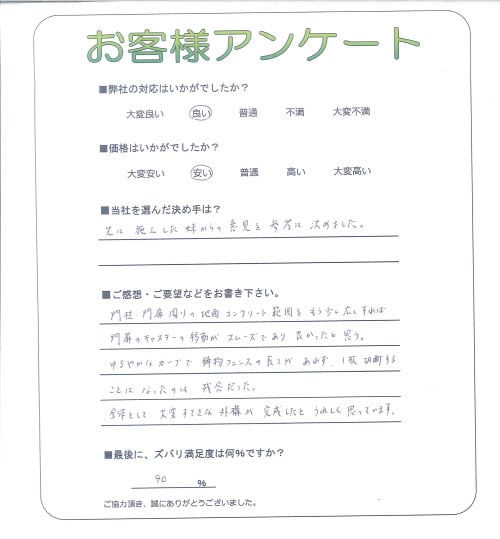 お客様アンケート
■弊社の対応はいかがでしたか？
大変良い 良い 普通 不満 大変不満
■価格はいかがでしたか？
大変安い 安い 普通 高い 大変高い
■当社を選んだ決め手は？
先に施工した妹からの意見を参考に決めました。
■ご感想・ご要望などをお書き下さい。
門柱・門扉周りの地面コンクリート範囲をもう少し広くすれば
門扉のキャスターの移動がスムーズであり良かったと思う。
ゆるやかなカーブで鋳物フェンスの長さがあわず、1枚切断する
ことになったのは残念だった。
全体として大変すてきな外構が完成したとうれしく思っています。
■最後に、ズバリ満足度は何％ですか？
90 ％
ご協力頂き、誠にありがとうございました。